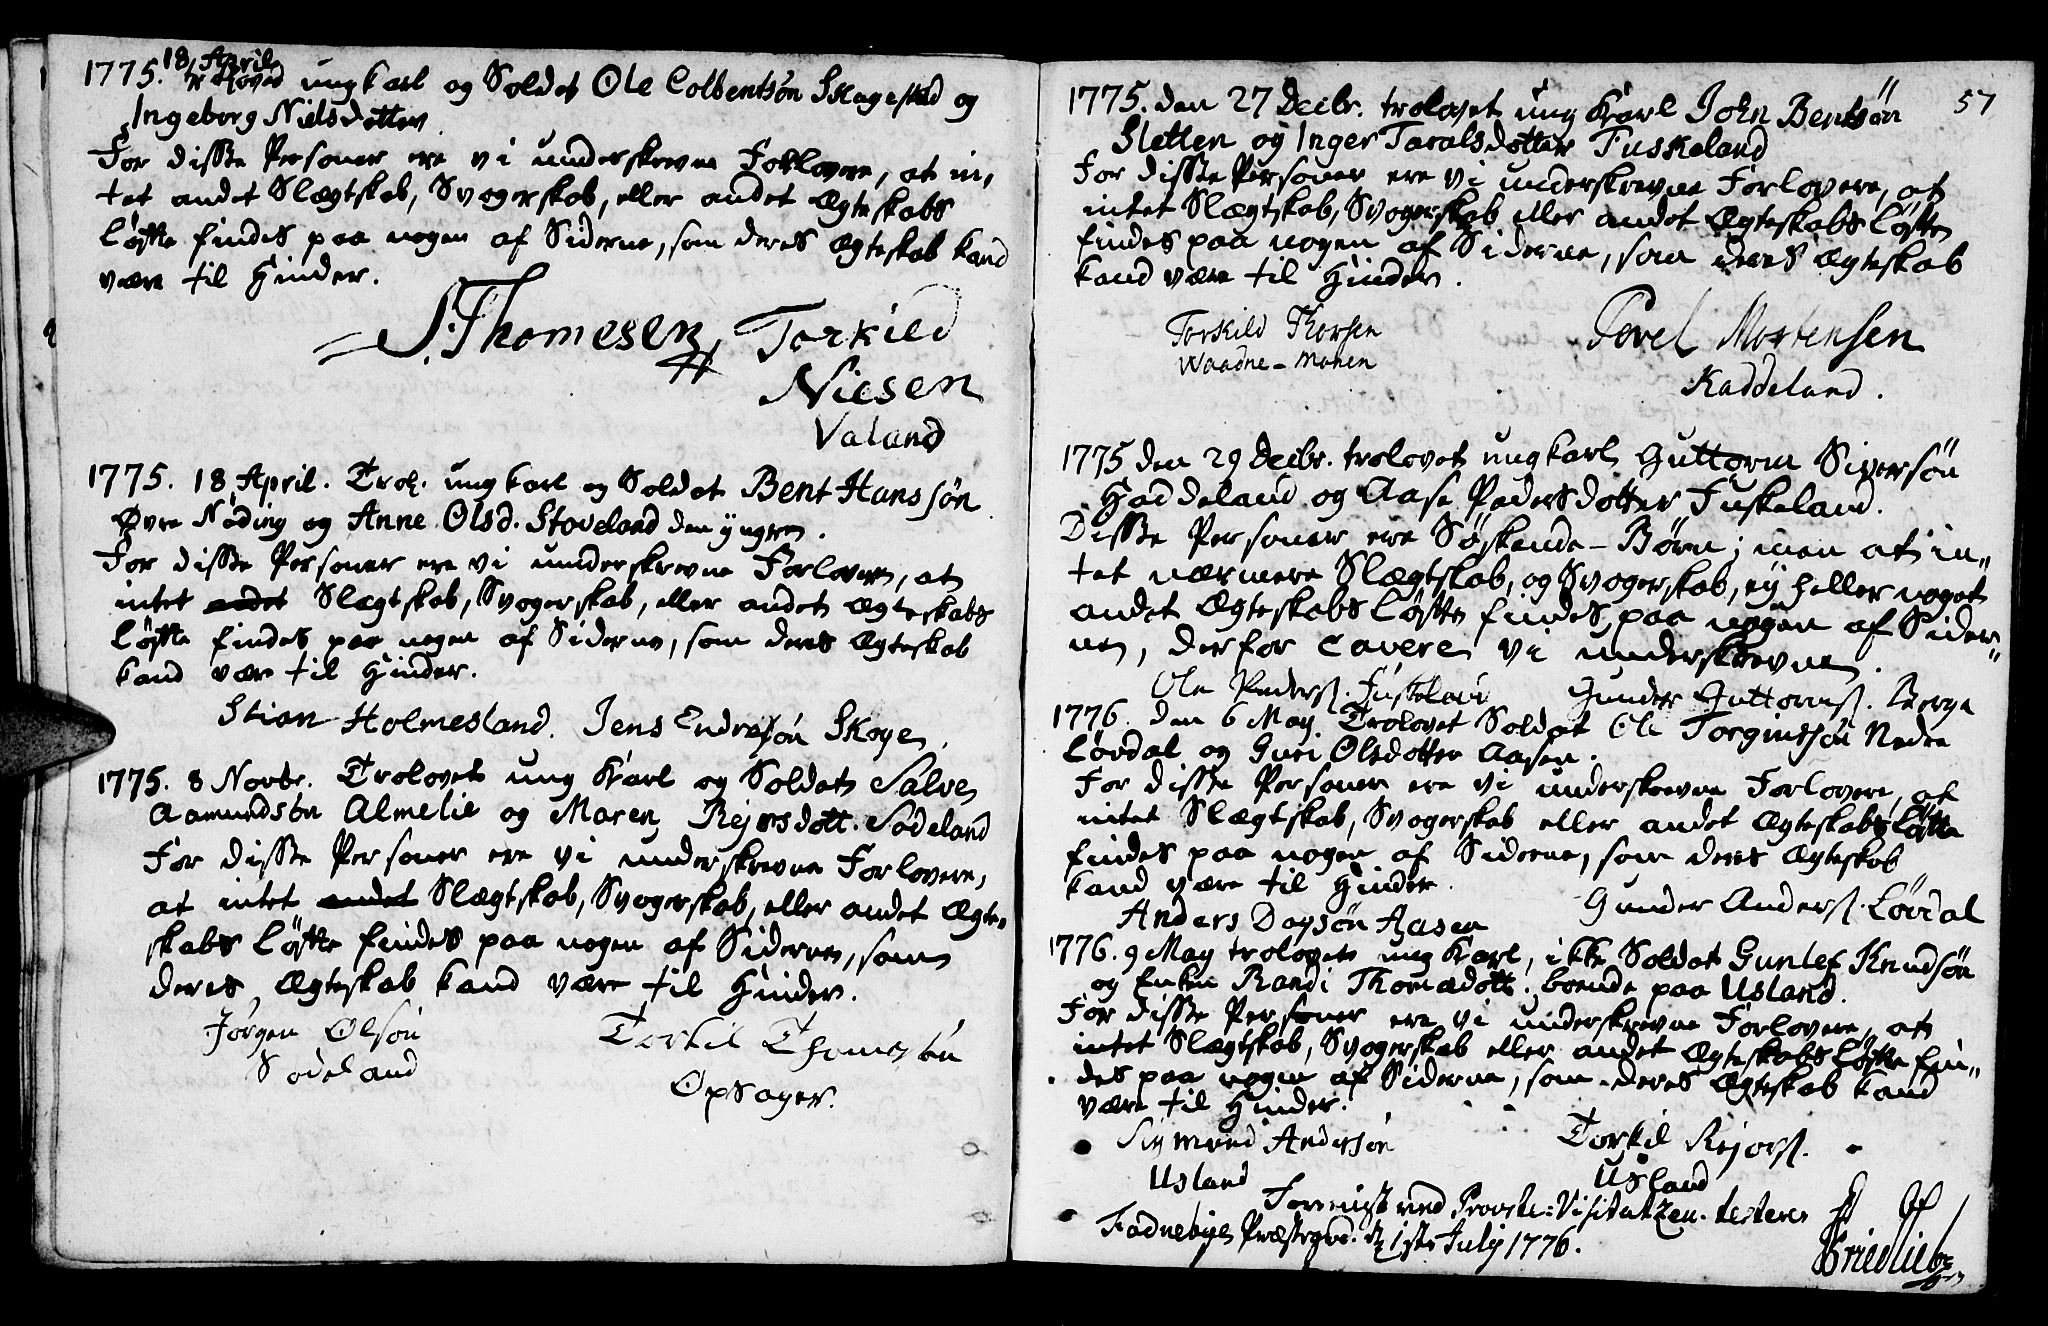 1775. 18 April
troloved ungkarl og Soldat Ole Colbentsön Skagestad og
Ingeborg Nielsdotter
For disse Personer ere vi underskrevne Forlovere, at in,
tet andet Slægtskab, Svogerskab, eller andet Ægteskabs
Løfte findes paa nogen af Siderne, som deres Ægteskab kand
være til Hinder.
S. Thomesen Torkild
Niesen
Valand
1775. 18 April. Trol. ungkarl og Soldat Bent Hanssön
Øvre Nöding og Anne Olsd. Stoveland den yngre.
For disse Personer ere vi underskrevne Forlovere, at
intet andet Slægtskab, Svogerskab, eller andet Ægteskabs
Løfte findes paa nogen af Siderne, som deres Ægteskab
kand være til Hinder.
Stian Holmesland. Jens Endresön Skoge.
1775. 8 Novbr. Trolovet ung Karl og Soldat Salve
Aamundsön Almelie og Maren Rejersdott. Sodeland
For disse Personer ere vi underskrevne Forlovere,
at intet andet Slægtskab, Svogerskab, eller andet Ægte,
skabs Løfte findes paa nogen af Siderne, som
deres Ægteskab kand være til Hinder.
Jörgen Olsön Torkil Thomesön
Sodeland Opsager.
57
1775. den 27 Decbr. trolovet ung Karl John Bentsön
Sletten og Inger Taralsdotter Fuskeland
For disse Personer ere vi underskrevne Forlovere, at
intet Slægtskab, Svogerskab eller andet Ægteskabs Løfte
findes paa nogen af Siderne, som deres Ægteskab
kand være til Hinder.
Torkild Thorsen Povel Mortensen
Waadne-Monen Kaddeland.
1775 den 29 Decbr. trolovet ungkarl Guttorm Siversön
Haddeland og Aase Pedersdotter Fuskeland.
Disse Personer ere Söskende-Børn; men at in„
tet nærmere Slægtskab, og Svogerskab, ey heller noget
andet Ægteskabs Løfte findes paa nogen af Sider„
ne, derfor cavere vi underskrevne.
Ole Peders. Fuskeland Gunder Guttorms. Berge
1776. den 6 May Trolovet Soldat Ole Torgiusson Nedre
Løvdal og Guri Olsdotter Aasen.
For disse Personer ere vi underskrevne Forlovere, at
intet Slægtskab, Svogerskab eller andet Ægteskabs Løfte
findes paa nogen af Siderne, som deres Ægteskab
kand være til Hinder.
Anders Dagsön Aasen Gunder Anders. Lövdal
1776. 9 May trolovet ung Karl, ikke Soldat Gunlef Knudsön
og Enken Randi Thomædott. boende paa Usland.
For disse Personer ere vi underskrevne Forlovere, at
intet Slægtskab, Svogerskab eller andet Ægteskabs Løfte fin„
des paa nogen af Siderne, som deres Ægteskab kand
være til Hinder.
Sigmund Andersön Torkil Rejors.
Usland Usland
Foreviist ved Provste-Visitatzen. testerer
Fadnebye Præstegrd. d 1ste July 1776.
Friedlieb